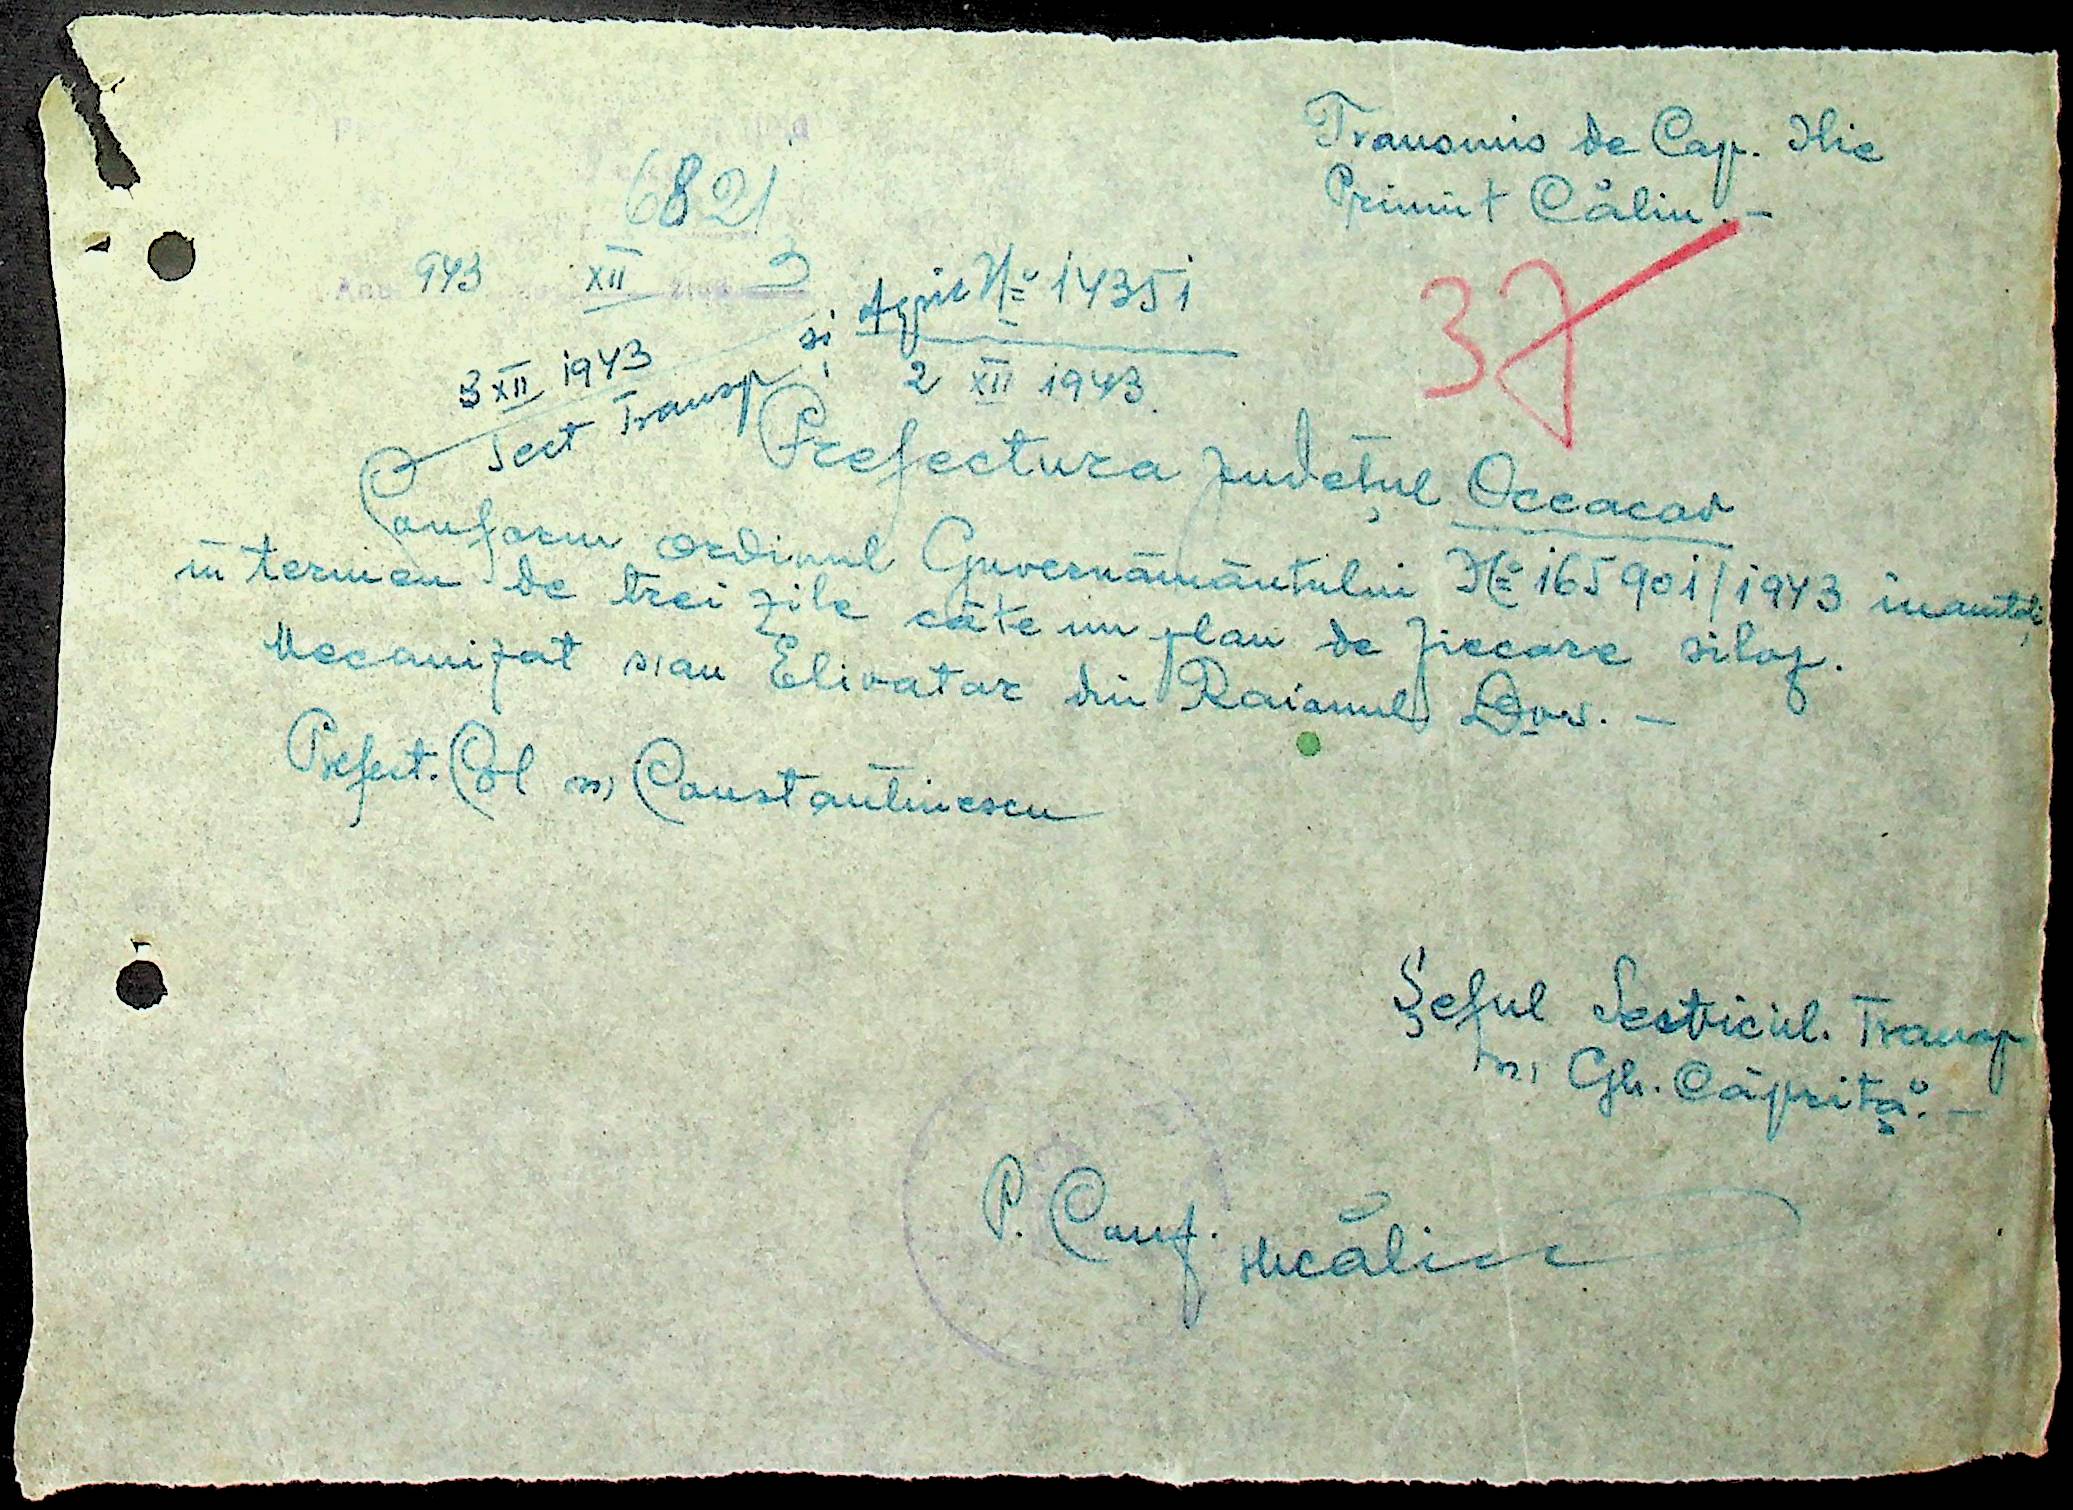 Transmis de Cap. Ilie
Primit Călin. –
6821
943 XII 3
37
3 XII 1943
Sect Transp și Agric № 14351
2 XII 1943.
Prefectura județul Oceacov
Conform ordinul Guvernământului № 165901/1943 inaintați
in termen de trei zile câte un plan de fiecare siloz.
Mecanizat siau Elivator din Raionul Dvs. –
Prefect. Col ss) Constantinescu
Șeful Serviciul. Transp
ss) Gh. Căpriță. –
P. Conf.